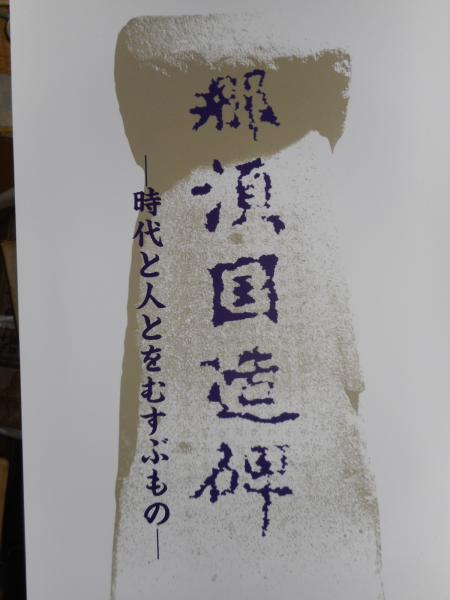 那須国造碑
―時代と人とをむすぶもの―